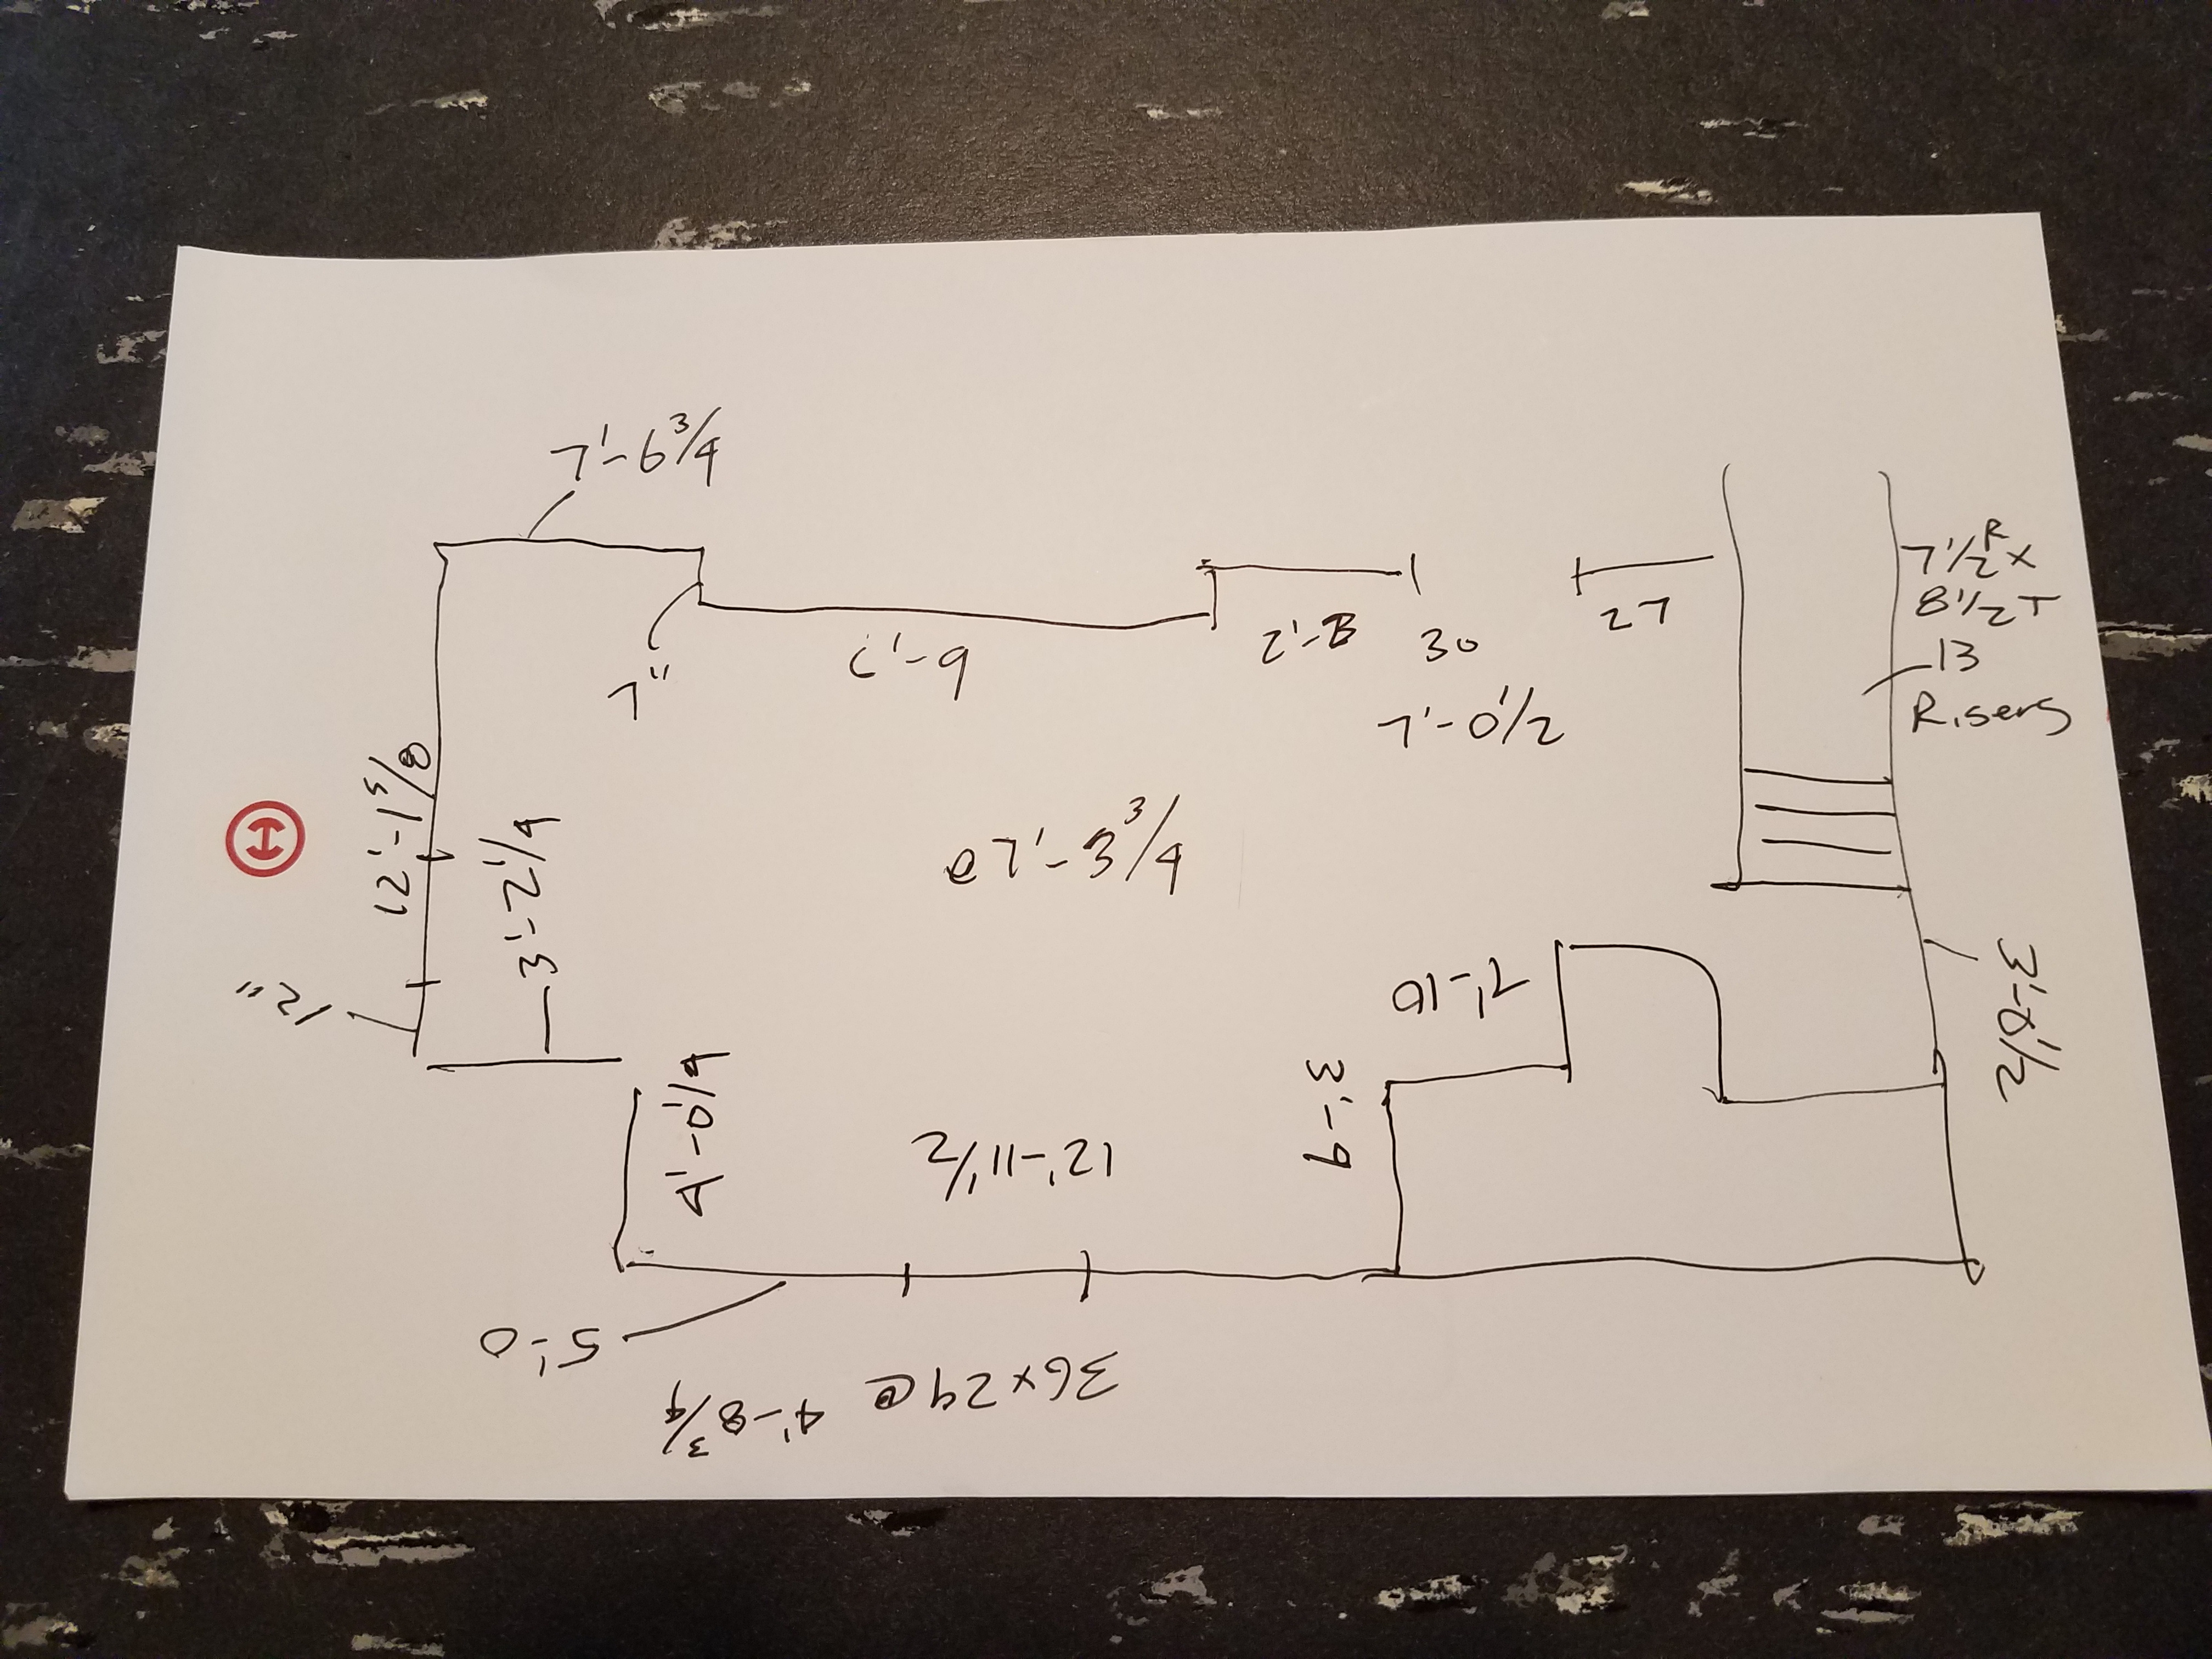 7'-6 3/4
7"
6'-9
2'-8
30
27
7'-0 1/2
7 1/2 R x
8 1/2 T
13
Risers
12'-1 5/8
3'-2 1/4
@ 7'-3 3/4
12"
2'-10
3'-6 1/2
4'-0 1/4
12'-11 1/2
3'-9
5'-0
36x24 @
4'-8 3/4